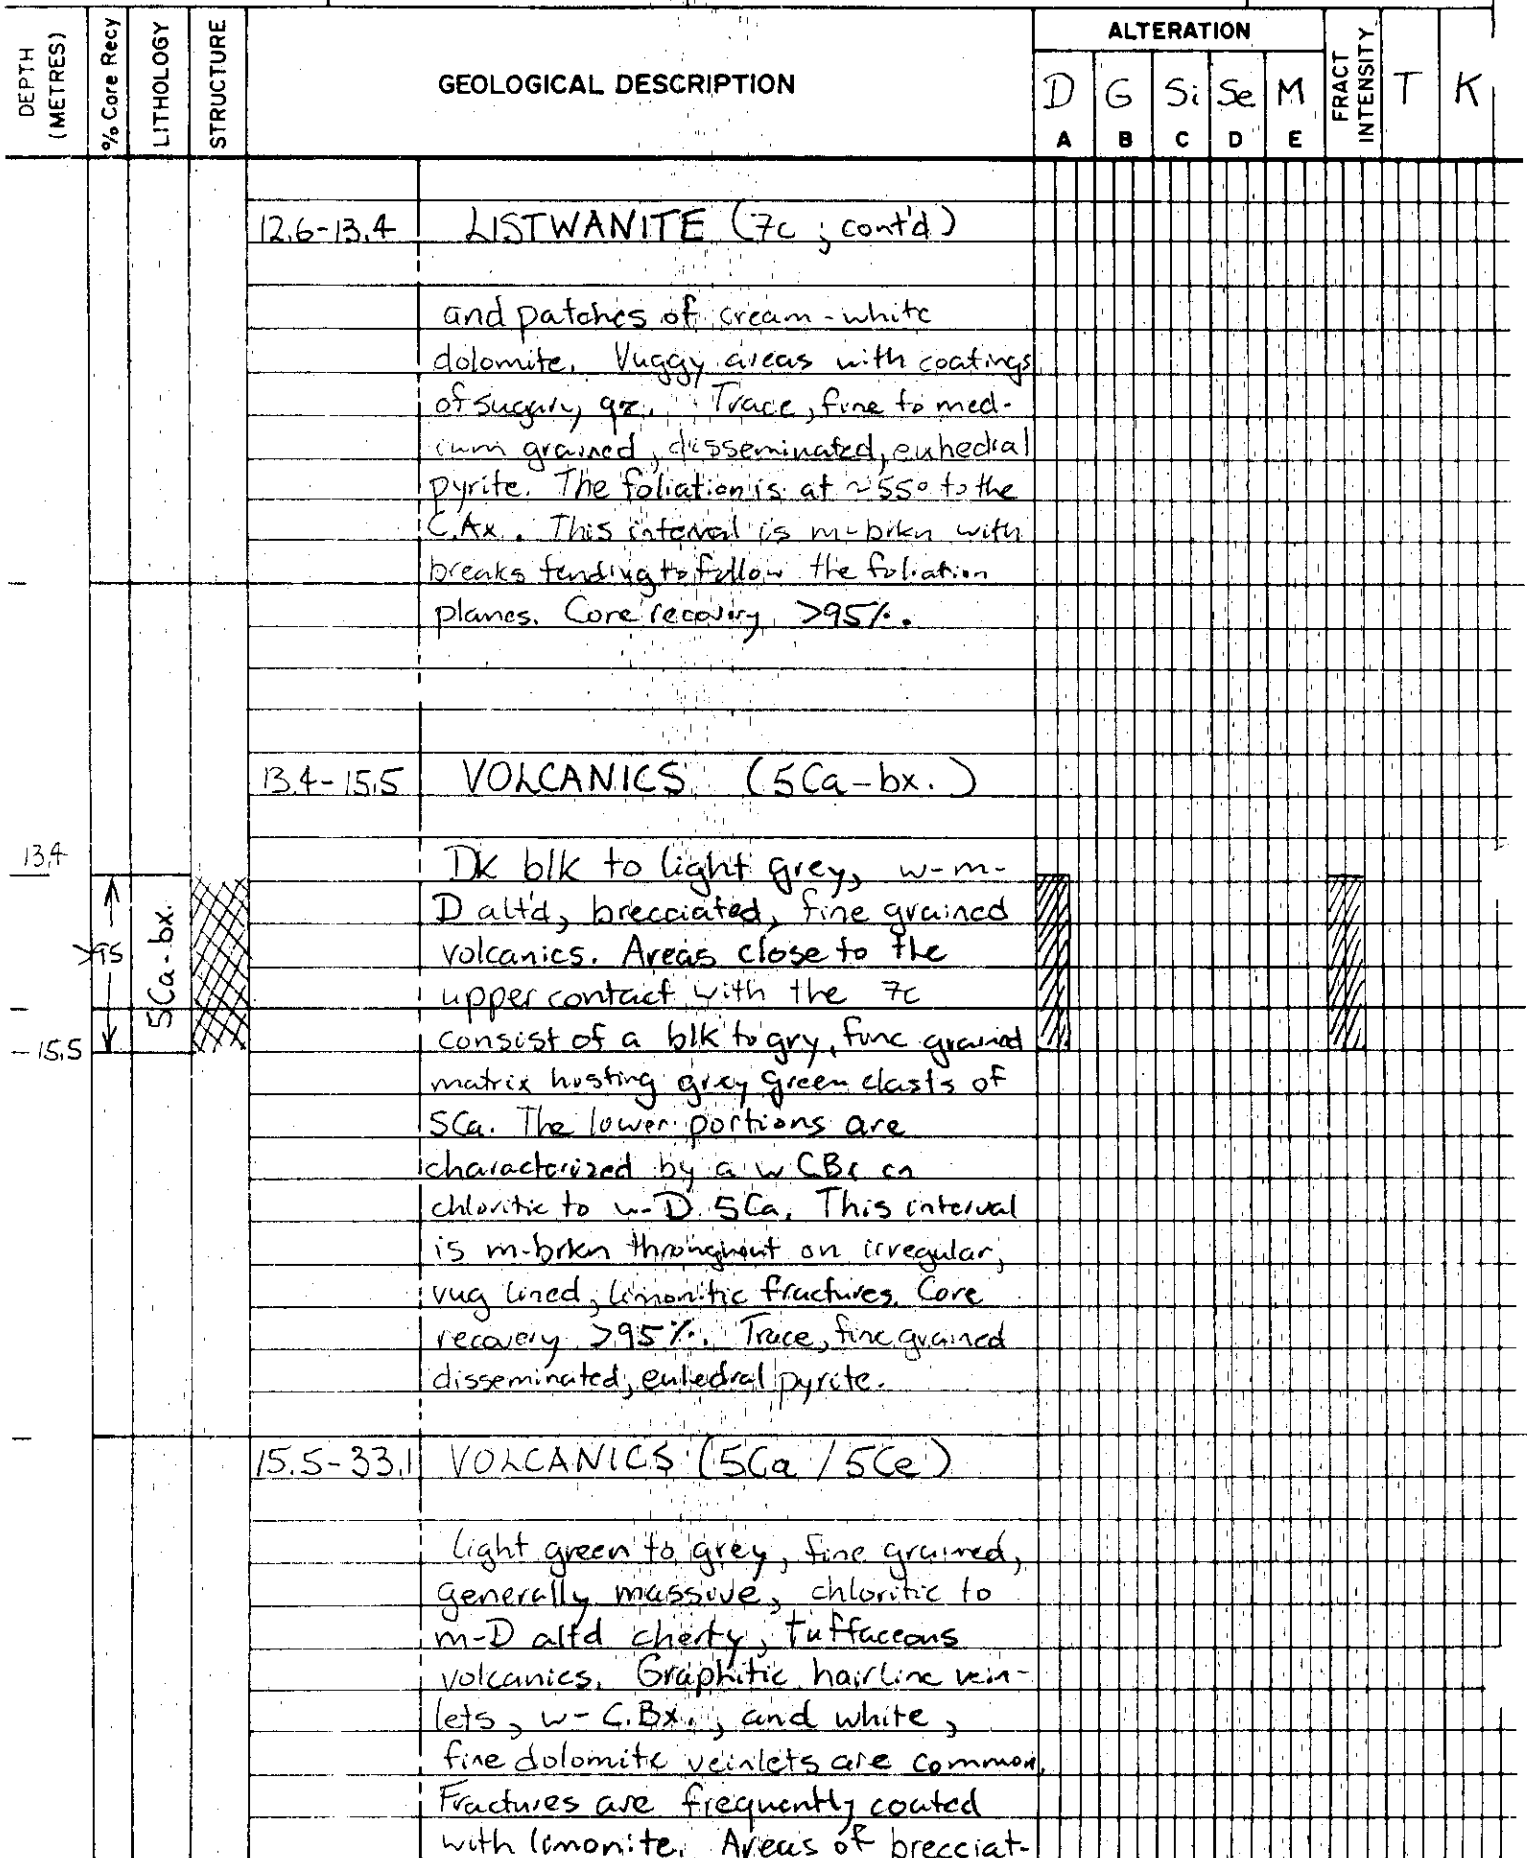 DEPTH (METRES)
% Core Recy
LITHOLOGY
STRUCTURE
GEOLOGICAL DESCRIPTION
ALTERATION
D G Si Se M
A B C D E
FRACT INTENSITY
T
K
12.6-13.4 LISTWANITE (7c ; cont'd)
and patches of cream-white
dolomite. Vuggy areas with coatings
of sugary qz. Trace, fine to med-
ium grained, disseminated, euhedral
pyrite. The foliation is at ~55° to the
C.Ax. This interval is m-brkn with
breaks tending to follow the foliation
planes. Core recovery >95%.
13.4-15.5 VOLCANICS (5Ca-bx.)
13.4
Dk blk to light grey, w-m-
D alt'd, brecciated, fine grained
>95
5Ca-bx.
volcanics. Areas close to the
upper contact with the 7c
-15.5
consist of a blk to gry, fine grained
matrix hosting grey green clasts of
5Ca. The lower portions are
characterized by a w CBx
chloritic to w-D 5Ca. This interval
is m-brkn throughout on irregular,
vug lined, limonitic fractures. Core
recovery >95%. Trace, fine grained
disseminated, euhedral pyrite.
15.5-33.1 VOLCANICS (5Ca / 5Ce)
light green to grey, fine grained,
generally massive, chloritic to
m-D altd cherty, tuffaceous
volcanics. Graphitic hairline vein-
lets, w-C.Bx., and white,
fine dolomite veinlets are common.
Fractures are frequently coated
with limonite. Areas of brecciat-